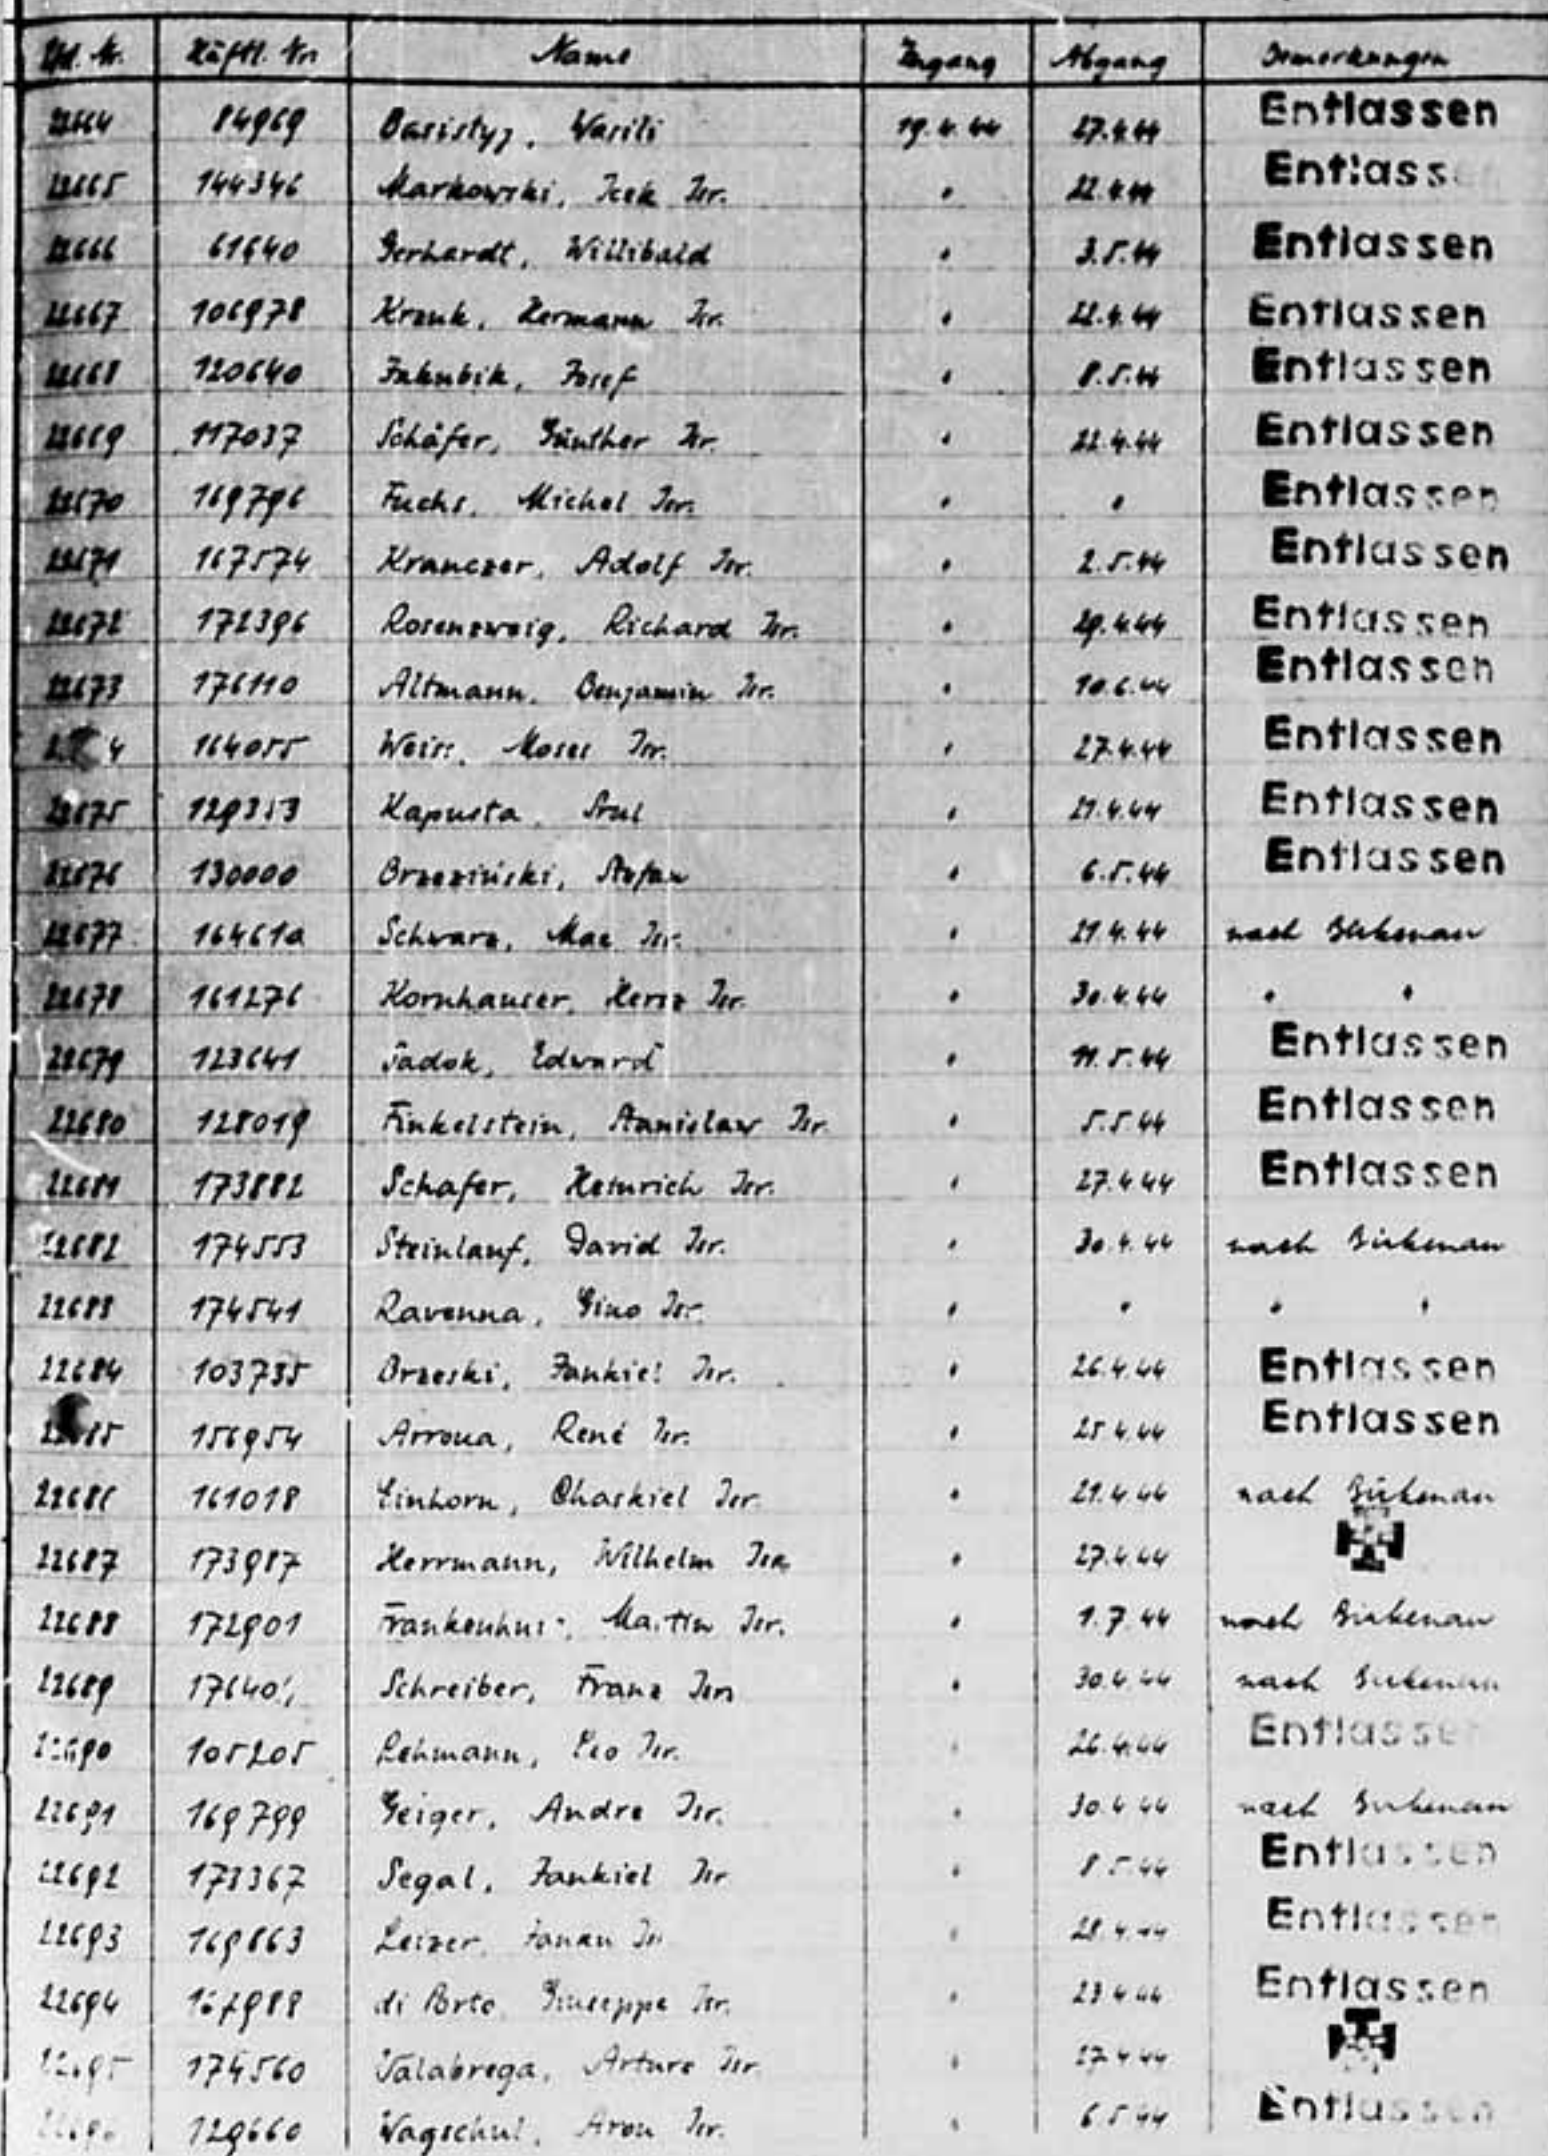 Lfd. Nr. Häftl. Nr. Name Zugang Abgang Bemerkungen
22664 84969 Basistyj, Wasili 19.4.44 27.4.44 Entlassen
22665 144346 Markowski, Icek Isr. " 22.4.44 Entlass
22666 61640 Gerhardt, Willibald " 3.5.44 Entlassen
22667 106978 Kronk, Hermann Isr. " 22.4.44 Entlassen
22668 120640 Jakubik, Josef " 8.5.44 Entlassen
22669 117037 Schäfer, Günther Isr. " 22.4.44 Entlassen
22670 169796 Fuchs, Michel Isr. " " Entlassen
22671 167574 Kranczer, Adolf Isr. " 2.5.44 Entlassen
22672 172396 Rosenzweig, Richard Isr. " 29.4.44 Entlassen
22673 176110 Altmann, Benjamin Isr. " 10.6.44 Entlassen
4 164055 Weiss, Moses Isr. " 27.4.44 Entlassen
22675 129353 Kapusta, Srul " 21.4.44 Entlassen
22676 130000 Brzeziński, Stefan " 6.5.44 Entlassen
22677 164610 Schwarz, Max Isr. " 21.4.44 nach Birkenau
22678 161276 Kornhauser, Hersz Isr. " 30.4.44 " "
22679 123641 Sadok, Edward " 11.5.44 Entlassen
22680 128019 Finkelstein, Stanislaw Isr. " 5.5.44 Entlassen
22681 173882 Schafer, Heinrich Isr. " 27.4.44 Entlassen
22682 174553 Steinlauf, David Isr. " 30.4.44 nach Birkenau
22683 174541 Ravenna, Gino Isr. " " " "
22684 103735 Brzeski, Jankiel Isr. " 26.4.44 Entlassen
22685 156954 Arroua, René Isr. " 25.4.44 Entlassen
22686 161018 Einhorn, Chaskiel Isr. " 21.4.44 nach Birkenau
22687 173987 Herrmann, Wilhelm Isr. " 27.4.44
22688 172901 Martin Isr. " 1.7.44 nach Birkenau
22689 Schreiber, Franz Isr. " 30.4.44 nach Birkenau
22690 105205 Lehmann, Leo Isr. " 26.4.44 Entlassen
22691 169799 Geiger, Andre Isr. " 30.4.44 nach Birkenau
22692 173367 Segal, Jankiel Isr. " 8.5.44 Entlassen
22693 169863 Leizer, Isr. " 28.4.44 Entlassen
22694 167988 di Porto, Giuseppe Isr. " 23.4.44 Entlassen
22695 174560 Valabrega, Arturo Isr. " 27.4.44
129660 Wagschul, Aron Isr. " 6.5.44 Entlassen